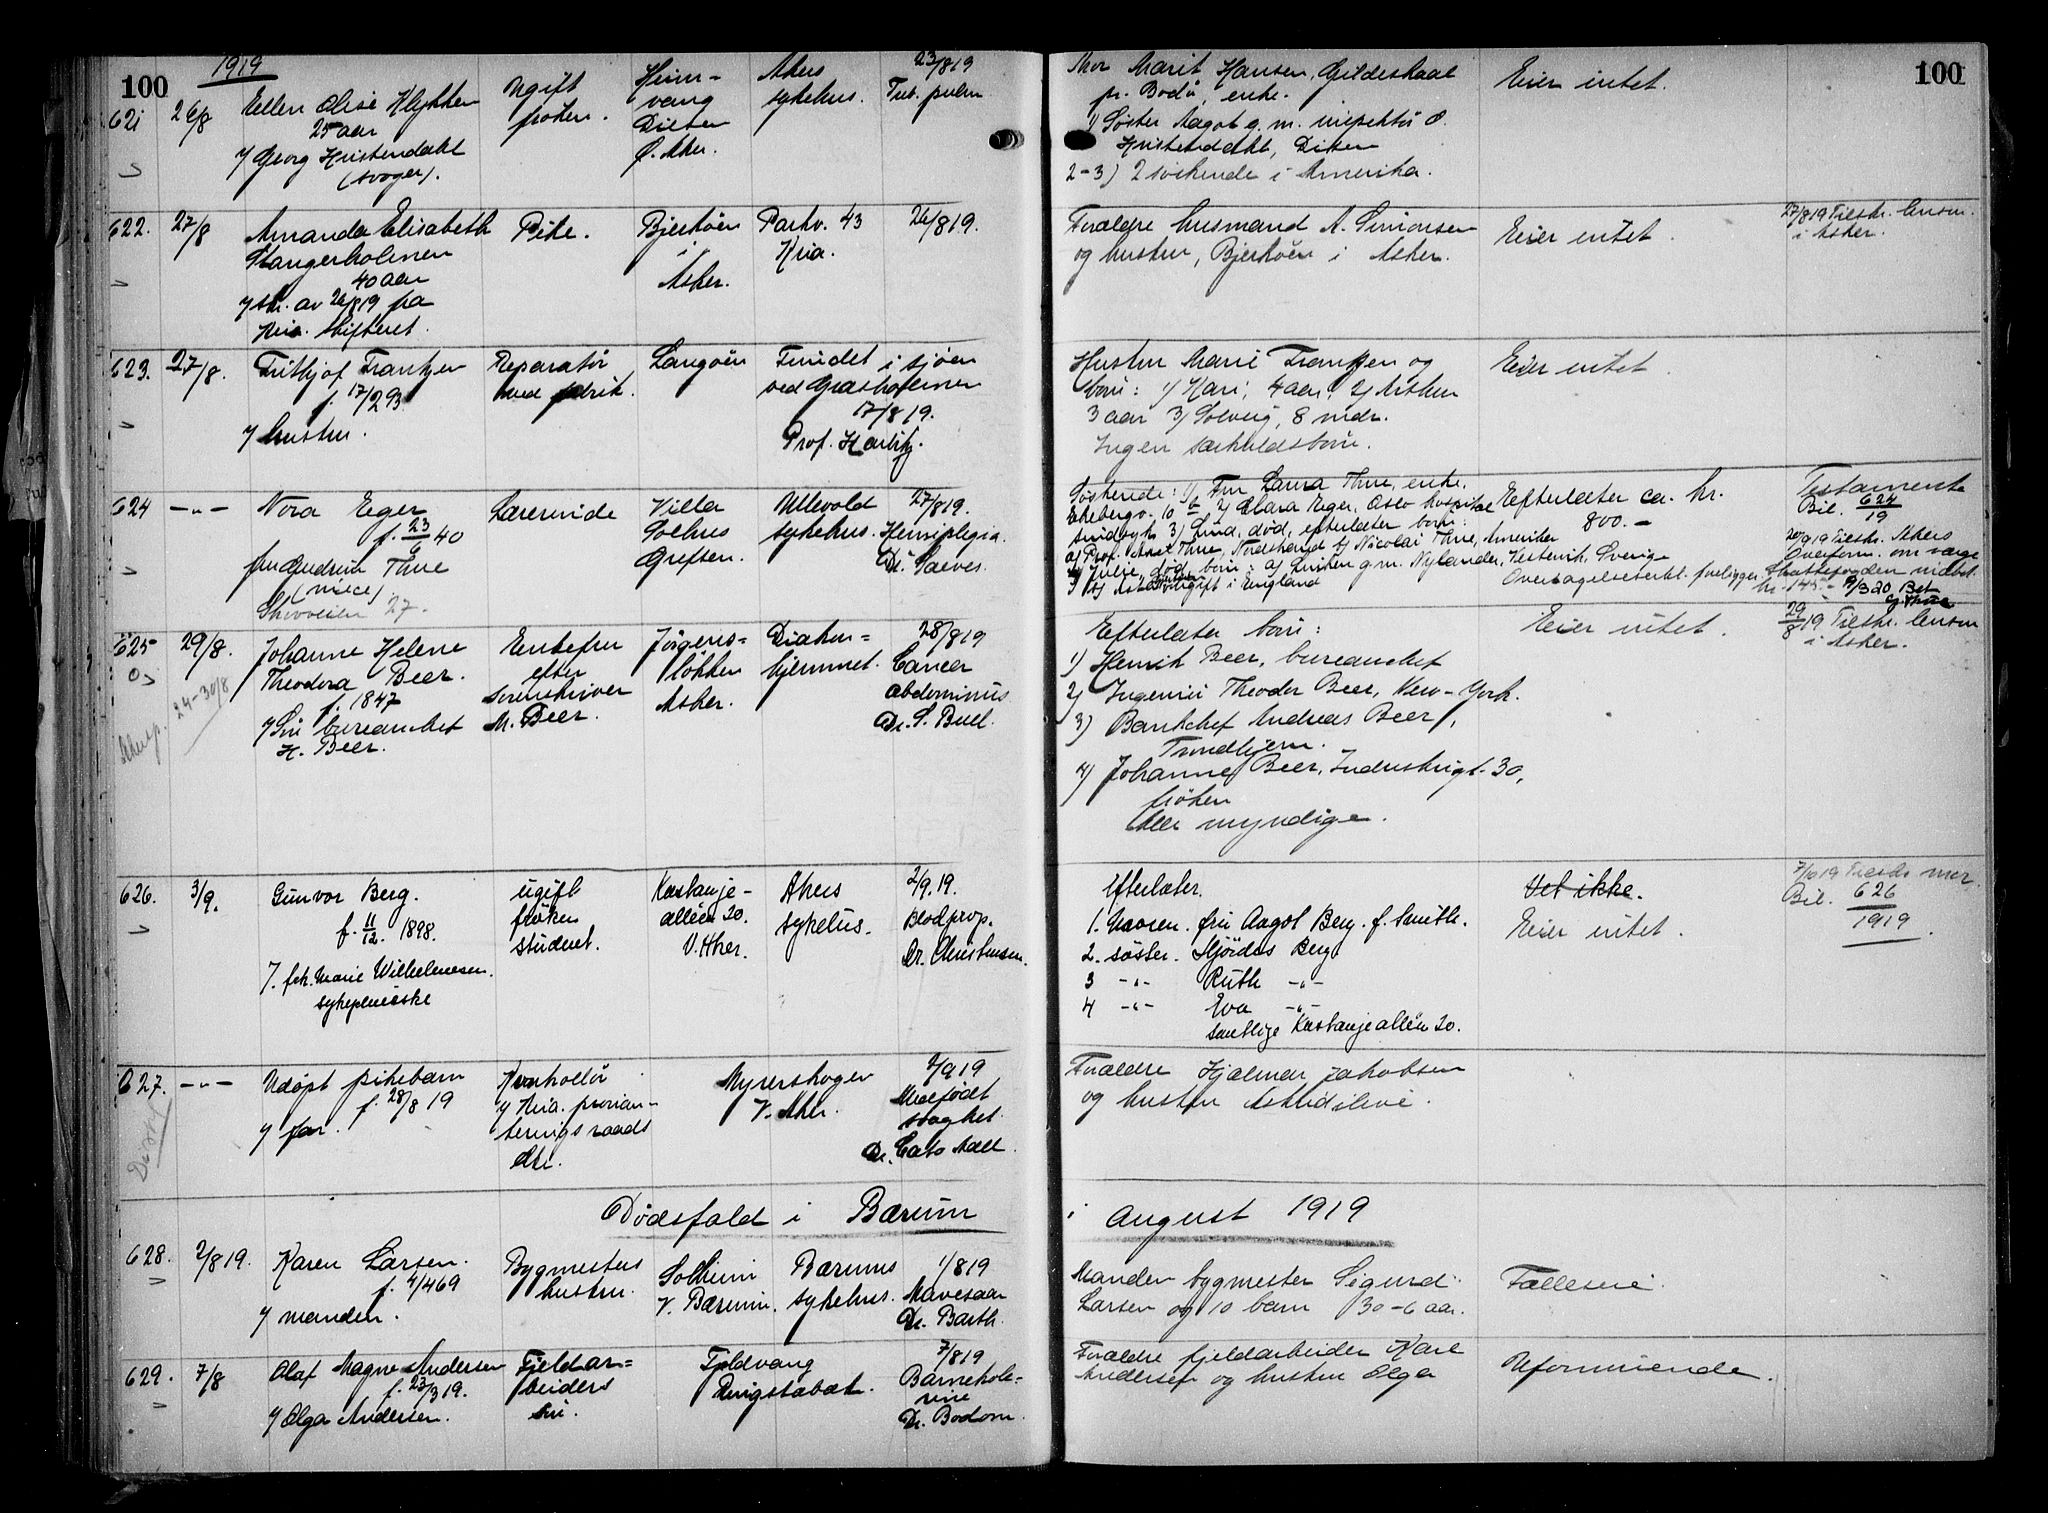 100
1919
100
621
26/8
Ellen Elise Klykken
25 aar
v/ Georg Kristendahl
(svoger).
Ugift
frøken.
Heim-
vang
Disen
Ø. Aker.
Akers
sykehus.
23/8 19
Tub. pulm
Mor Marit Hansen, Gildeskaal
pr. Bodø, enke.
1) Søster Aagot g. m. inspektør O.
Kristendahl, Disen
2-3) 2 søskende i Amerika.
Eier intet.
622.
27/8
Amanda Elisabeth
Stangerholmen
40 aar
v/ skr. av 26/8 19 fra
Kria. skifteret.
Pike.
Bjerkøen
i
Asker.
Parkv. 43
Kria.
26/8 19.
Forældre husmand A. Simonsen
og hustru, Bjerkøen i Asker.
Eier intet.
27/8 19 Tilskr. lensm.
i Asker.
623.
27/8.
Fritjof Frantzen
f. 17/2 93
v/ hustru.
Reparatør
ved fabrik.
Langøen
Fundet i sjøen
ved Græsholmen
17/8 19.
Prof. Harbitz.
Hustru Marie Frantzen og
børn: 1/ Kari, 4 aar, 2/ Arthur
3 aar 3/ Solveig, 8 mdr.
Ingen særkuldsbørn.
Eier intet.
624
-"-
Nora Eger
f. 23/3 40
fru Gudrun Thue
(niece)
Skovveien 27.
Lærerinde
Villa
Solhus
Grefsen.
Ullevold
sykehus.
27/8 19.
Hemiplegia.
Dr. Saeves.
Søskende: 1/ Fru Laura Thue, enke,
Ekebergv. 10 b 2/ Clara Eger, Oslo hospital
sindssyk 3/ Lund, død, efterlater børn:
a/ Prof. Axel Thue, Nordstrand b/ Nicolai Thue, Amerika
4/ Julie, død, børn: a/ g. m. Nylander, Vestervik, Sverige
ugift i England
Efterlater ca. kr.
800.-
Overtagelseserkl. foreligger.
Testamente
Bil. 624/19
20/9 19 Tilskr. Akers
Overform. om værge
Skattefogden
kr. 145.- 9/3 20 Bet
625
29/8.
24-30/8
Johanne Helene
Theodora Beer.
f. 1847
v/ Søn bureauchef
H. Beer.
Enkefru
efter
sorenskriver
M. Beer.
Jørgens-
løkken
Asker.
Diakon-
hjemmet.
28/8 19
Cancer
abdominus
Dr. S. Buel.
Efterlater børn:
1) Henrik Beer, bureauchef
2) Ingeniør Theodor Beer, New-York.
3) Bankchef Andreas Beer,
Trondhjem.
4) Johanne Beer, Industrigt. 30,
frøken
Alle myndige.
Eier intet.
29/8 19 Tilskr. lensm
i Asker.
626.
3/9.
Gunvor Berg.
f. 11/12. 1898.
v. frk. Marie Wilhelmsen.
sykepleierske
ugift
frøken
student.
Kastanje-
alléen 20.
V. Aker.
Akers
sykehus.
2/9. 19.
Blodprop.
Dr. Christensen.
Efterlater.
1. Moren. fru Aagot Berg. f. Smith.
2. søster. Hjørdis Berg
3 -"- Ruth -"-
4 -"- Eva -"-
samtlige Kastanjealléen 20.
Vet ikke.
Eier intet.
7/10 19 Tilskr. mor.
Bil. 626/1919
627.
-"-
Udøpt pikebarn
f. 28/8 19
v/ far.
Kontrollør
v/ Kria. provian-
teringsraads
Myrerskogen
V. Aker.
2/9 19
Medfødt
svaghet
Dr. Cato Aall.
Forældre Hjalmar Jakobsen
og hustru
Dødsfald i Bærum
i August 1919
628.
2/8 19.
Karen Larsen.
f. 4/4 69
v/ manden.
Bygmesters
hustru.
Solheim
V. Bærum.
Bærums
sykehus.
1/8 19
Mavesaar
Dr. Barth.
Manden bygmester Sigurd
Larsen og 10 barn 30-6 aar.
Fælleseie.
629.
7/8
Olaf Magne Andersen
f. 23/3 19.
v/ Olga Andersen.
Fjeldar-
beiders
søn.
Fjeldvang
Ringstabæk.
7/8 19
Barnekole-
rine
Dr. Bodom.
Forældre fjeldarbeider Karl
Andersen og hustru Olga
Uformuende.